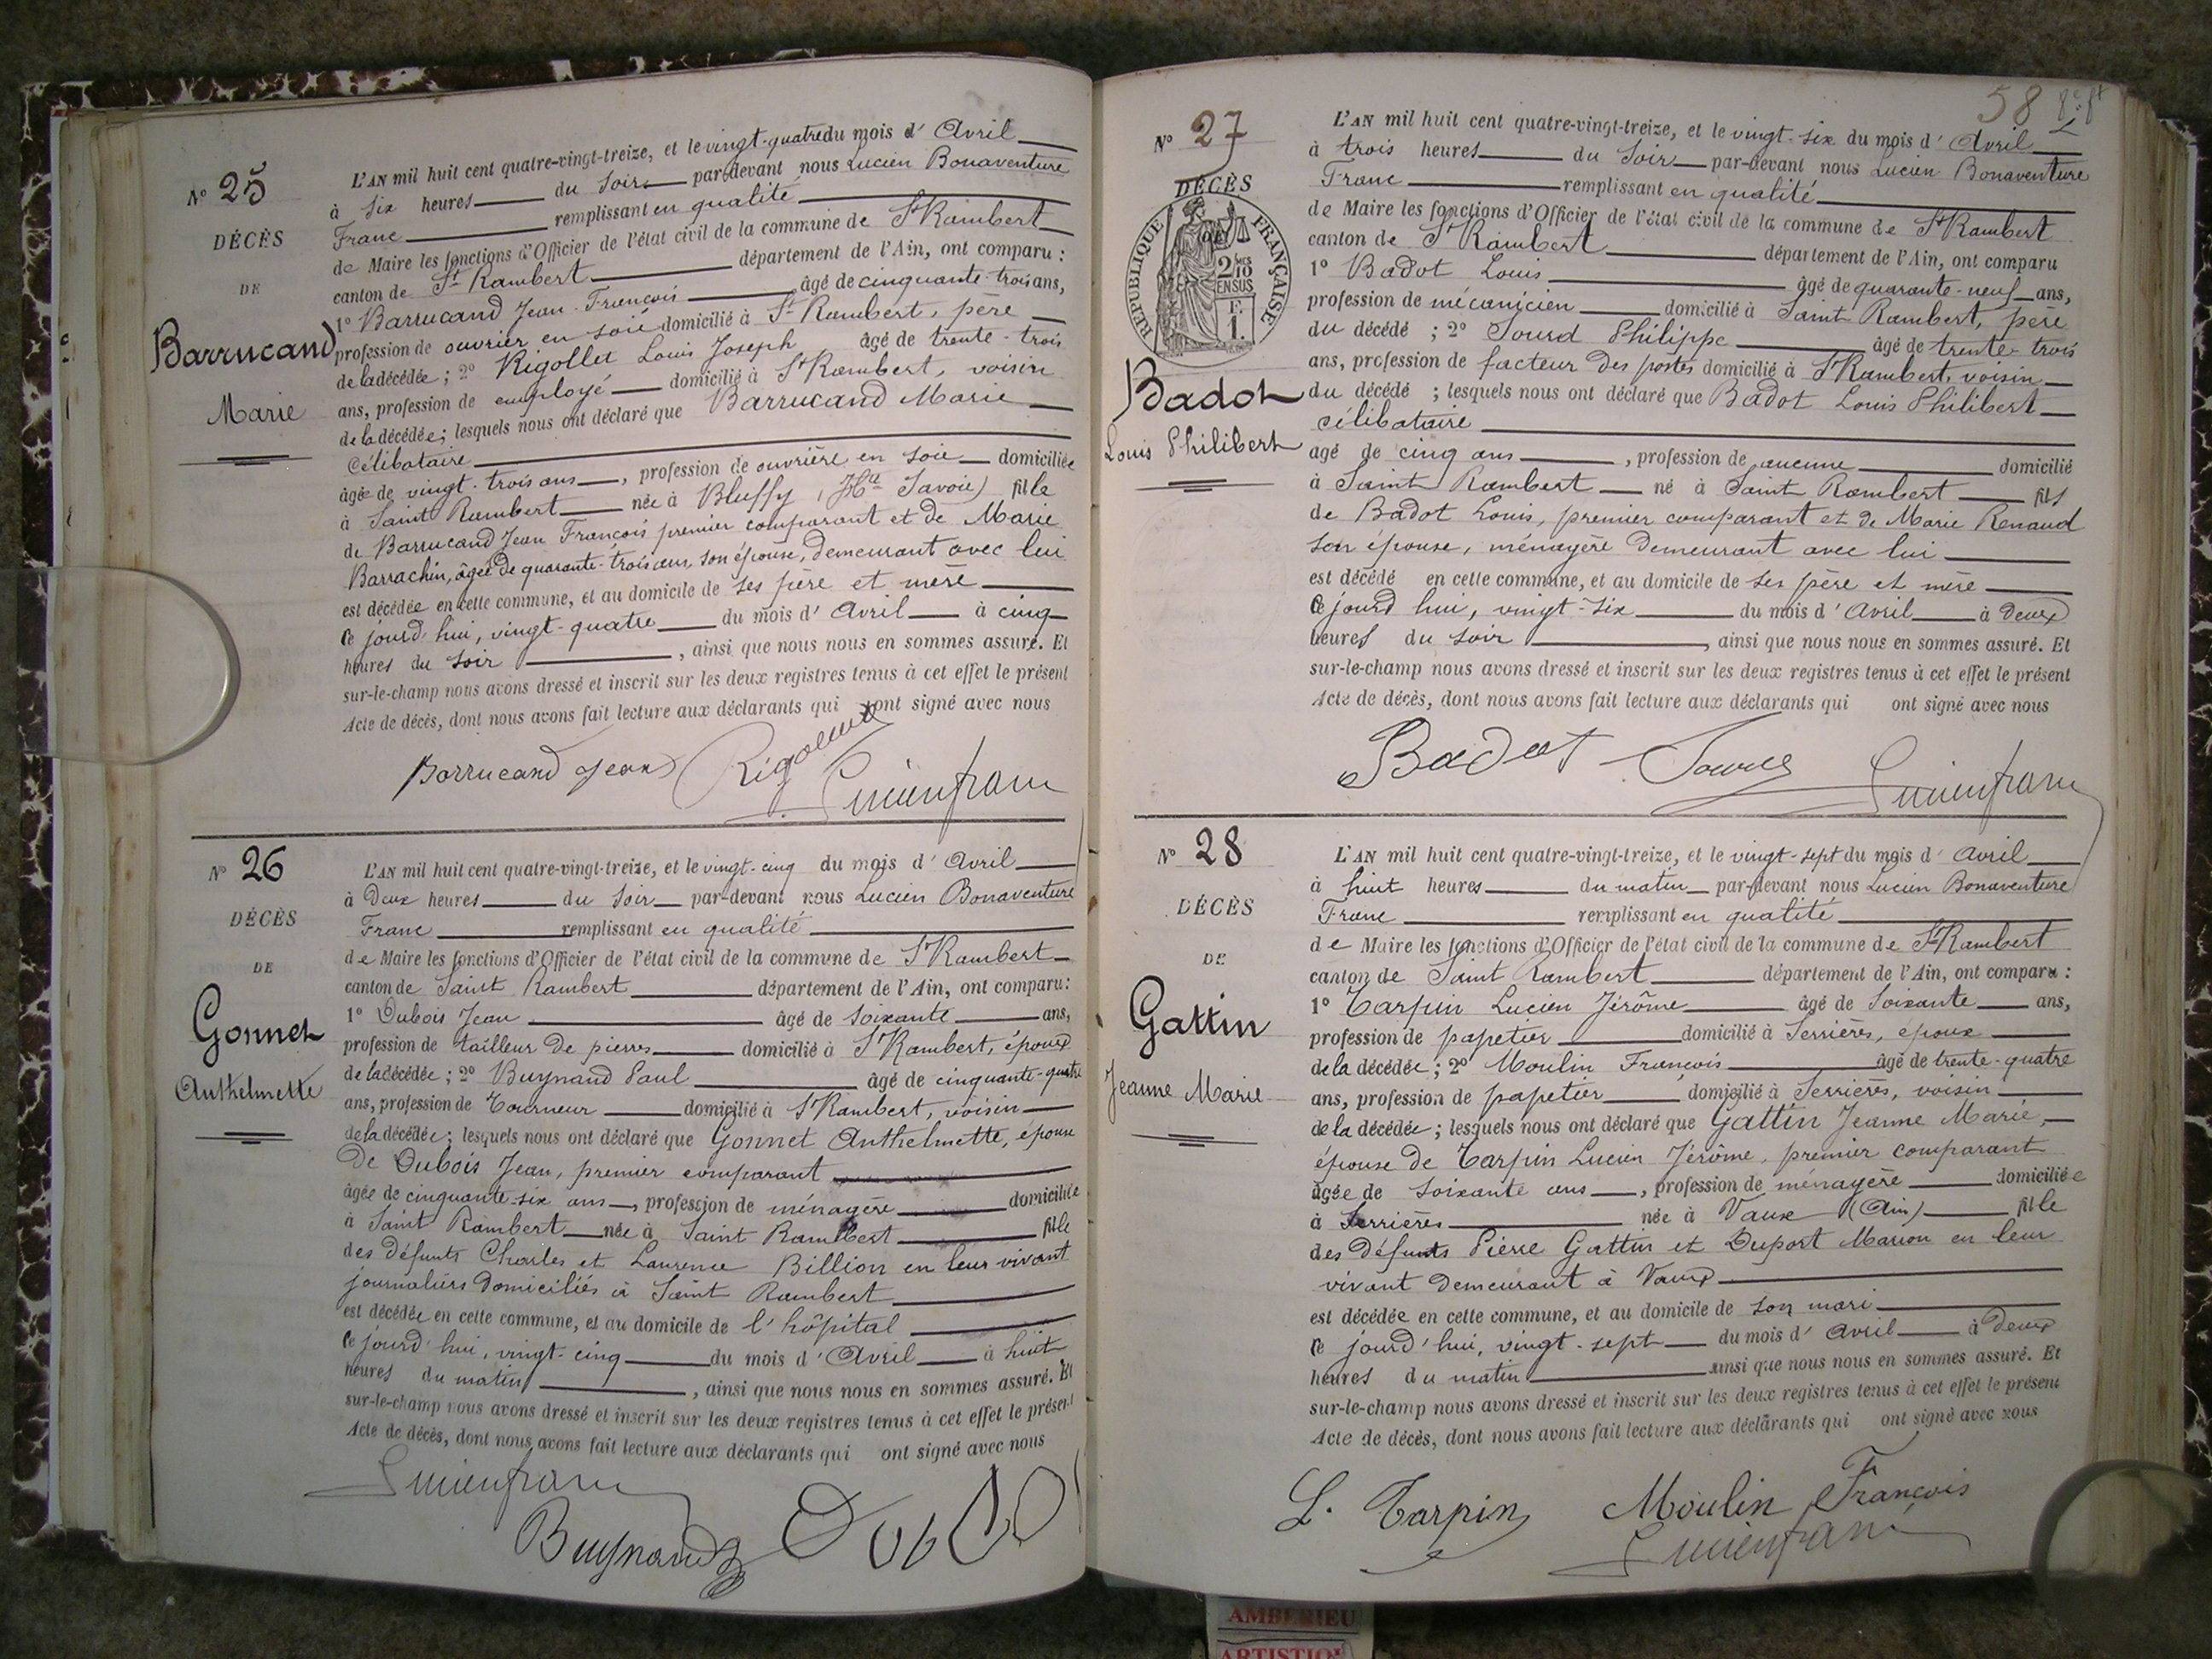 N° 25
DÉCÈS
DE
Barrucand
Marie
L'AN mil huit cent quatre-vingt-treize, et le vingt-quatre du mois d' Avril
à six heures du soir par-devant nous Lucien Bonaventure
Franc remplissant en qualité
de Maire les fonctions d'Officier de l'état civil de la commune de St Rambert
canton de St Rambert département de l'Ain, ont comparu :
1° Barrucand Jean-François âgé de cinquante-trois ans,
profession de ouvrier en soie domicilié à St Rambert, père
de la décédée ; 2° Rigollet Louis Joseph âgé de trente-trois
ans, profession de employé domicilié à St Rambert, voisin
de la décédée ; lesquels nous ont déclaré que Barrucand Marie
célibataire
âgée de vingt-trois ans, profession de ouvrière en soie domiciliée
à Saint Rambert née à Bluffy (Hte Savoie) fille
de Barrucand Jean François premier comparant et de Marie
Barrachin, âgée de quarante-trois ans, son épouse, demeurant avec lui
est décédée en cette commune, et au domicile de ses père et mère
ce jourd'hui, vingt-quatre du mois d' Avril à cinq
heures du soir, ainsi que nous nous en sommes assuré. Et
sur-le-champ nous avons dressé et inscrit sur les deux registres tenus à cet effet le présent
Acte de décès, dont nous avons fait lecture aux déclarants qui ont signé avec nous
Barrucand Jean Rigollet
Lucien franc
N° 26
DÉCÈS
DE
Gonnet
Anthelmette
L'AN mil huit cent quatre-vingt-treize, et le vingt-cinq du mois d' Avril
à Deux heures du soir par-devant nous Lucien Bonaventure
Franc remplissant en qualité
de Maire les fonctions d'Officier de l'état civil de la commune de St Rambert
canton de Saint Rambert département de l'Ain, ont comparu :
1° Dubois Jean âgé de soixante ans,
profession de tailleur de pierres domicilié à St Rambert, époux
de la décédée ; 2° Buynand Paul âgé de cinquante-quatre
ans, profession de Tourneur domicilié à St Rambert, voisin
de la décédée ; lesquels nous ont déclaré que Gonnet Anthelmette, épouse
de Dubois Jean, premier comparant
âgée de cinquante-six ans, profession de ménagère domiciliée
à Saint Rambert née à Saint Rambert fille
des défunts Charles et Laurence Billion en leur vivant
journaliers domiciliés à Saint Rambert
est décédée en cette commune, et au domicile de l'hôpital
ce jourd'hui, vingt-cinq du mois d' Avril à huit
heures du matin, ainsi que nous nous en sommes assuré. Et
sur-le-champ nous avons dressé et inscrit sur les deux registres tenus à cet effet le présent
Acte de décès, dont nous avons fait lecture aux déclarants qui ont signé avec nous
Lucien franc
Buynand
58
N° 27
DÉCÈS
RÉPUBLIQUE FRANÇAISE
2/10 EN SUS
F. 1.
Badot
Louis Philibert
L'AN mil huit cent quatre-vingt-treize, et le vingt-six du mois d' Avril
à trois heures du soir par-devant nous Lucien Bonaventure
Franc remplissant en qualité
de Maire les fonctions d'Officier de l'état civil de la commune de St Rambert
canton de St Rambert département de l'Ain, ont comparu
1° Badot Louis âgé de quarante-neuf ans,
profession de mécanicien domicilié à Saint Rambert, père
du décédé ; 2° Sourd Philippe âgé de trente-trois
ans, profession de facteur des postes domicilié à St Rambert, voisin
du décédé ; lesquels nous ont déclaré que Badot Louis Philibert
célibataire
agé de cinq ans, profession de aucune domicilié
à Saint Rambert né à Saint Rambert fils
de Badot Louis, premier comparant et de Marie Renaud
son épouse, ménagère demeurant avec lui
est décédé en cette commune, et au domicile de ses père et mère
ce jourd'hui, vingt-six du mois d' Avril à deux
heures du soir, ainsi que nous nous en sommes assuré. Et
sur-le-champ nous avons dressé et inscrit sur les deux registres tenus à cet effet le présent
Acte de décès, dont nous avons fait lecture aux déclarants qui ont signé avec nous
Badot Sourd
Lucien franc
N° 28
DÉCÈS
DE
Gattin
Jeanne Marie
L'AN mil huit cent quatre-vingt-treize, et le vingt-sept du mois d' Avril
à huit heures du matin par-devant nous Lucien Bonaventure
Franc remplissant en qualité
de Maire les fonctions d'Officier de l'état civil de la commune de St Rambert
canton de Saint Rambert département de l'Ain, ont comparu :
1° Tarpin Lucien Jérôme âgé de soixante ans,
profession de papetier domicilié à Serrières, époux
de la décédée ; 2° Moulin François âgé de trente-quatre
ans, profession de papetier domicilié à Serrières, voisin
de la décédée ; lesquels nous ont déclaré que Gattin Jeanne Marie,
épouse de Tarpin Lucien Jérôme, premier comparant
âgée de soixante ans, profession de ménagère domiciliée
à Serrières née à Vaux (Ain) fille
des défunts Pierre Gattin et Duport Marion en leur
vivant demeurant à Vaux
est décédée en cette commune, et au domicile de son mari
ce jourd'hui, vingt-sept du mois d' Avril à deux
heures du matin ainsi que nous nous en sommes assuré. Et
sur-le-champ nous avons dressé et inscrit sur les deux registres tenus à cet effet le présent
Acte de décès, dont nous avons fait lecture aux déclarants qui ont signé avec nous
L. Tarpin Moulin François
Lucien franc
AMBERIEU